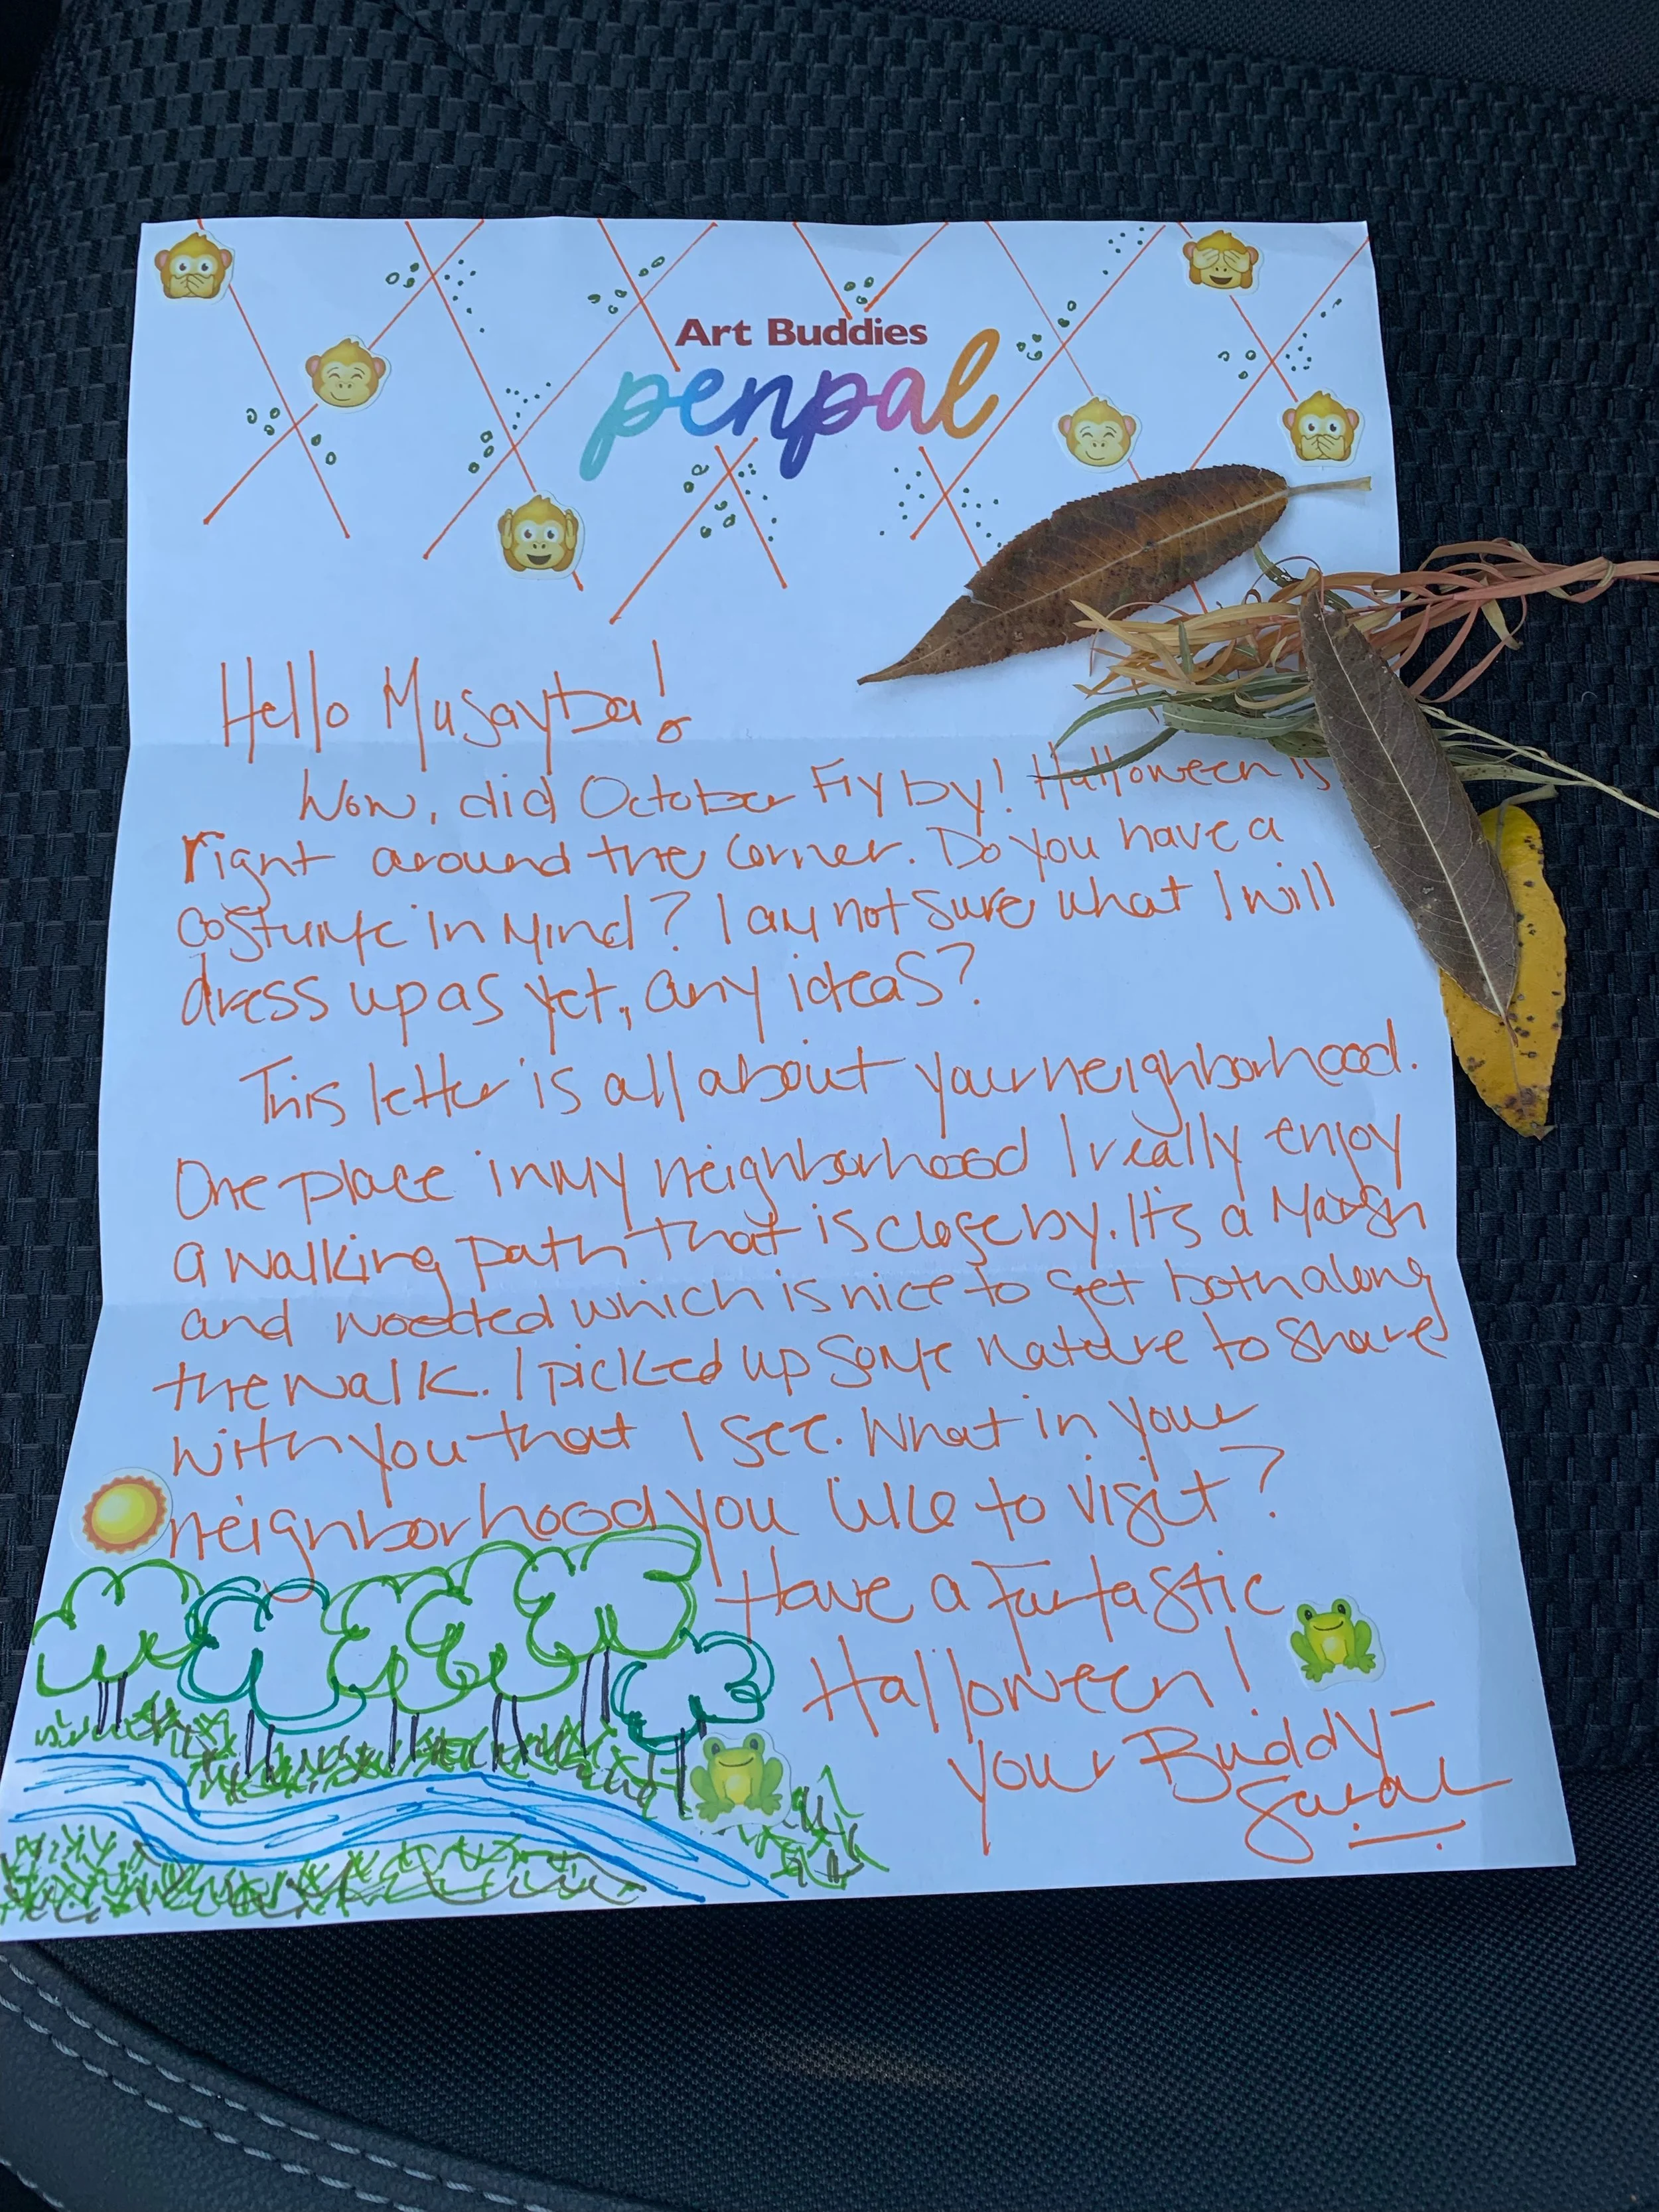 Art Buddies
penpal
Hello Musayba!
Wow, did October Fly by! Halloween is
right around the corner. Do you have a
costume in mind? I am not sure what I will
dress up as yet, any ideas?
This letter is all about your neighborhood.
One place in my neighborhood I really enjoy
a walking path that is close by. It's a Marsh
and wooded which is nice to get both along
the walk. I picked up some nature to share
with you that I see. What in your
neighborhood you like to visit?
Have a Fantastic
Halloween!
Your Buddy-
Sarah